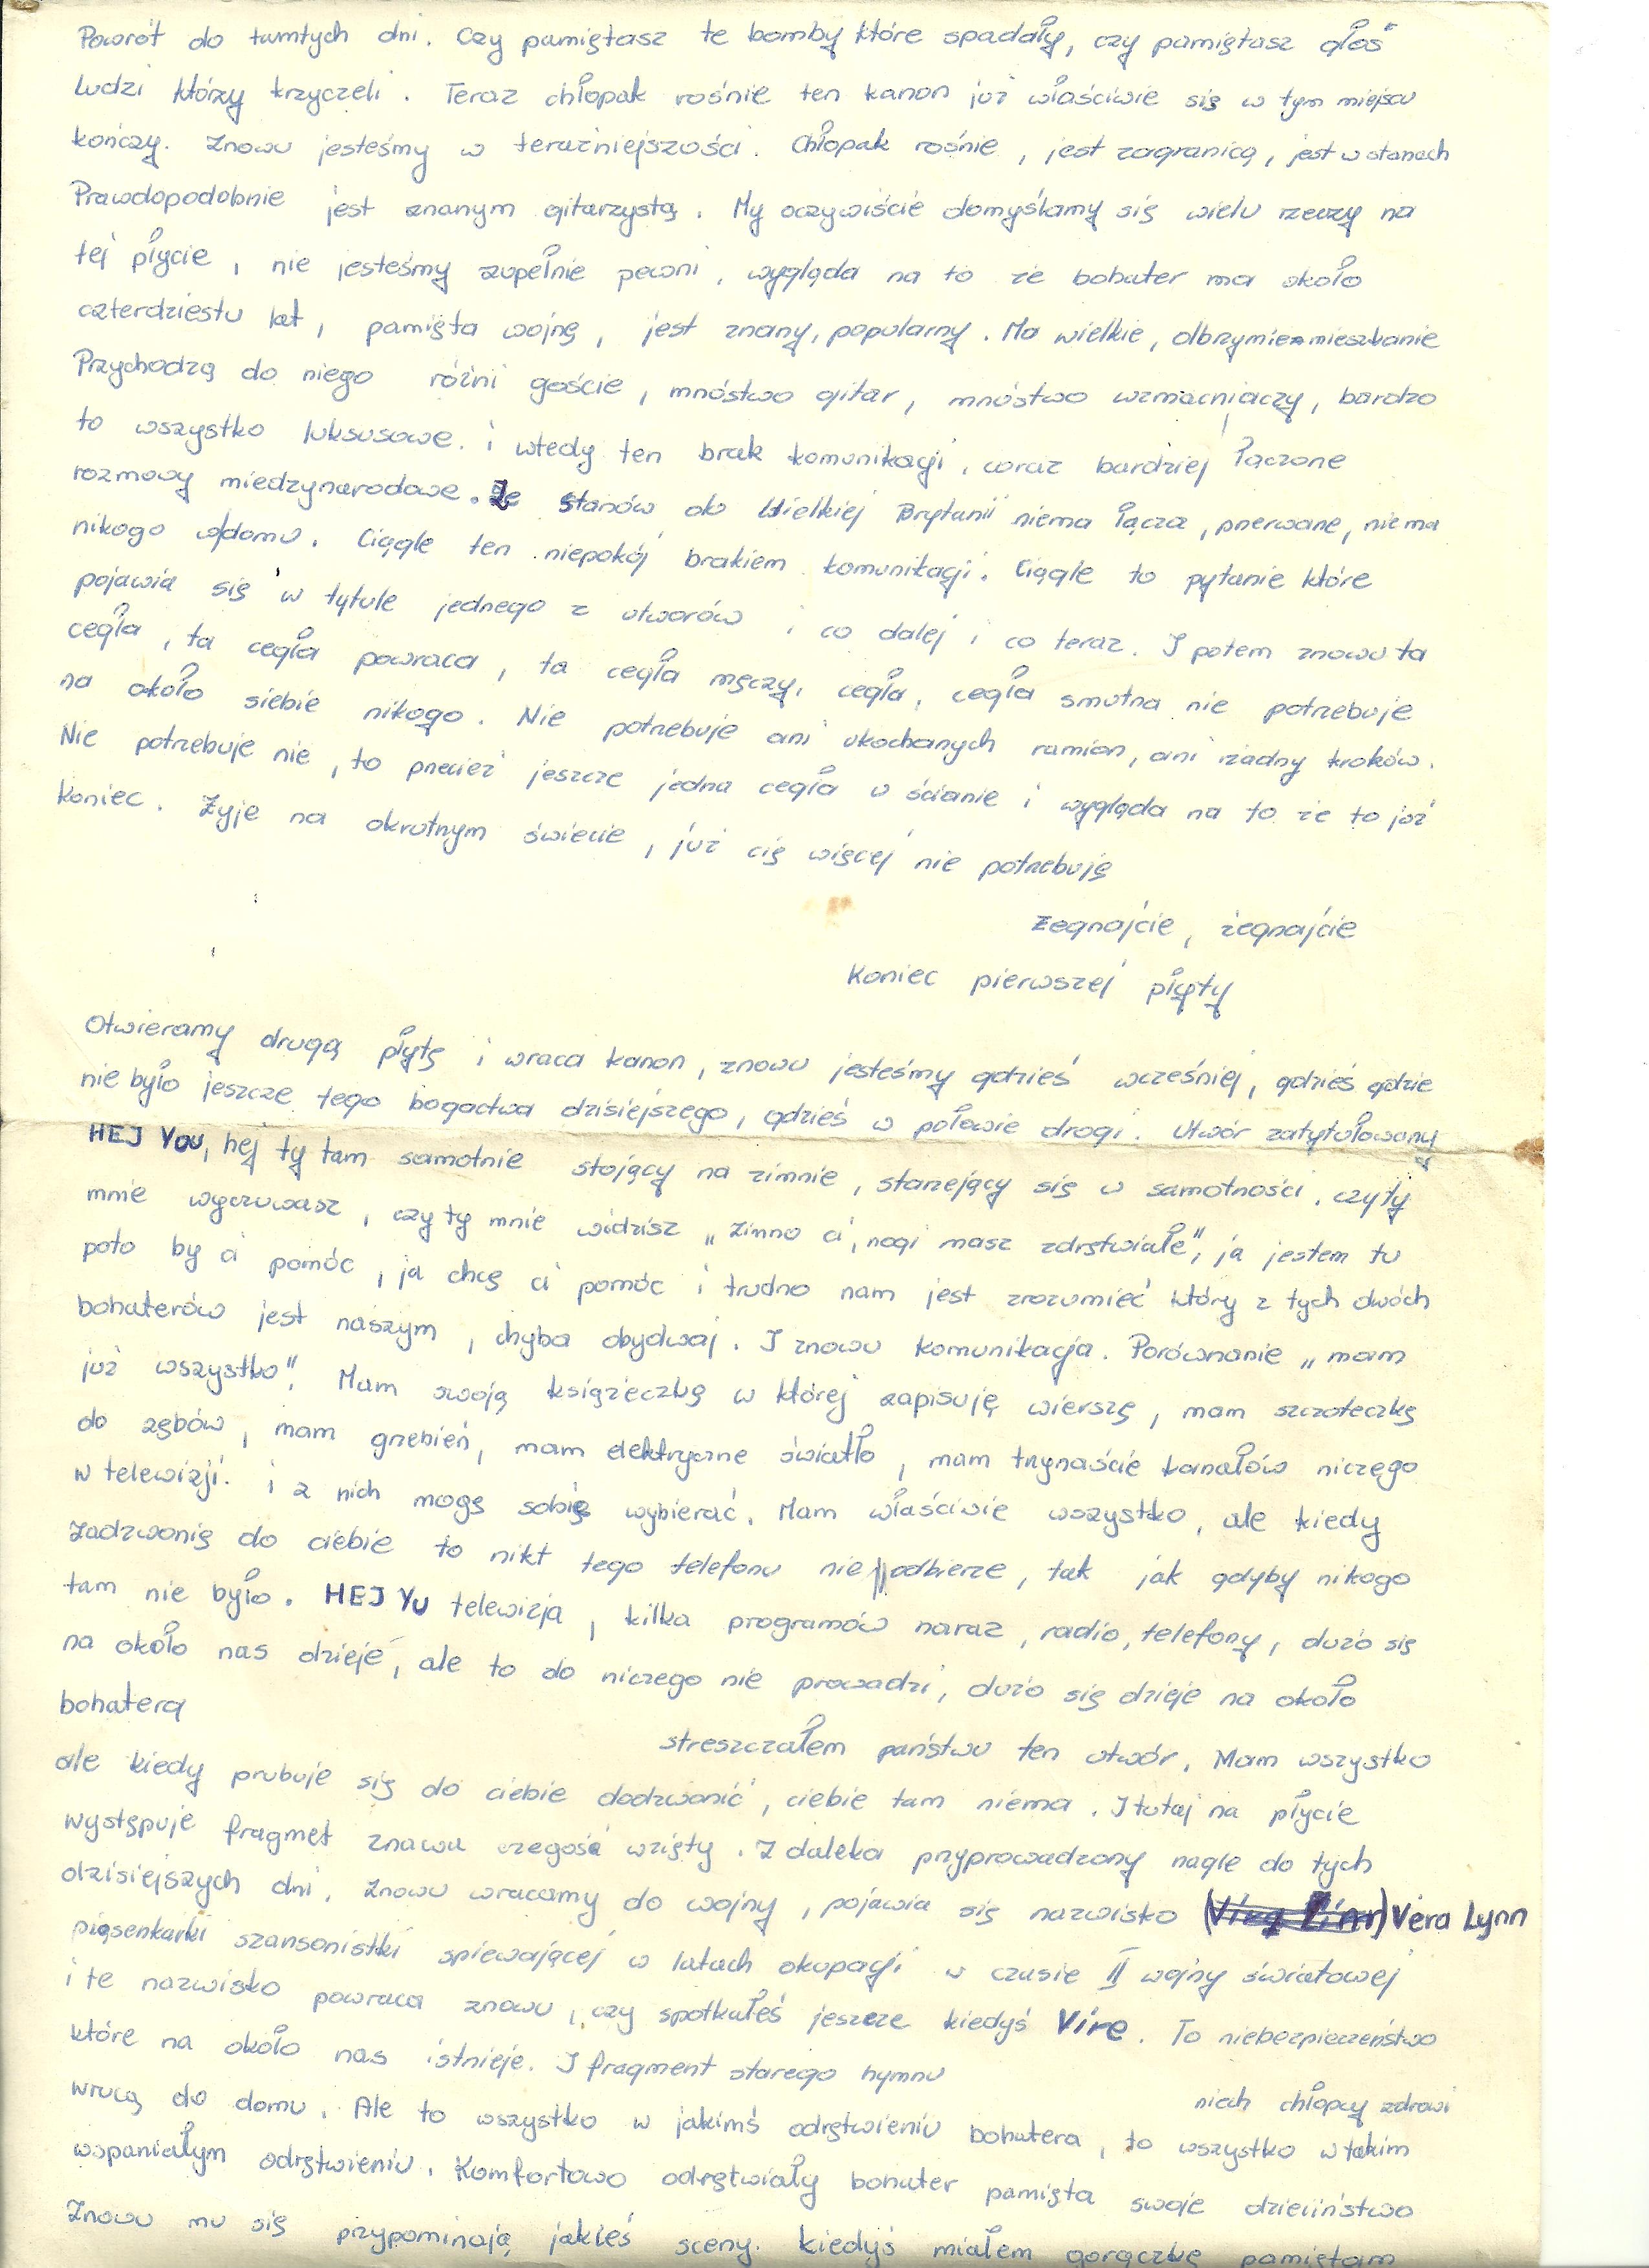 Powrót do tamtych dni. Czy pamiętasz te bomby które spadały, czy pamiętasz głos
ludzi którzy krzyczeli. Teraz chłopak rośnie ten kanon już właściwie się w tym miejscu
kończy. Znowu jesteśmy w teraźniejszości. Chłopak rośnie, jest zagranicą, jest w stanach
Prawdopodobnie jest znanym gitarzystą. My oczywiście domyślamy się wielu rzeczy na
tej płycie, nie jesteśmy zupełnie pewni, wygląda na to że bohater ma około
czterdziestu lat, pamięta wojnę, jest znany, popularny. Ma wielkie, olbrzymie mieszkanie
Przychodzą do niego różni goście, mnóstwo gitar, mnóstwo wzmacniaczy, bardzo
to wszystko luksusowe. i wtedy ten brak komunikacji, coraz bardziej łączone
rozmowy miedzynarodowe. Ze stanów do Wielkiej Brytanii niema łącza, przerwane, nie ma
nikogo w domu. Ciągle ten niepokój brakiem komunikacji. Ciągle to pytanie które
pojawia się w tytule jednego z utworów i co dalej i co teraz. I potem znowu ta
cegła, ta cegła powraca, ta cegła męczy, cegła, cegła smutna nie potrzebuje
na około siebie nikogo. Nie potrzebuje ani ukochanych ramion, ani żadny kroków.
Nie potrzebuje nie, to przecież jeszcze jedna cegła w ścianie i wygląda na to że to już
koniec. Żyje na okrutnym świecie, już cię więcej nie potrzebuję
Żegnajcie, żegnajcie
Koniec pierwszej płyty
Otwieramy drugą płytę i wraca kanon, znowu jesteśmy gdzieś wcześniej, gdzieś gdzie
nie było jeszcze tego bogactwa dzisiejszego, gdzieś w połowie drogi. Utwór zatytułowany
HEJ YOU, hej ty tam samotnie stojący na zimnie, starzejący się w samotności. czy ty
mnie wyczuwasz, czy ty mnie widzisz „zimno ci, nogi masz zdrętwiałe", ja jestem tu
poto by ci pomóc, ja chcę ci pomóc i trudno nam jest zrozumieć który z tych dwóch
bohaterów jest naszym, chyba obydwaj. I znowu komunikacja. Porównanie „mam
już wszystko". Mam swoją książeczkę w której zapisuję wierszę, mam szczoteczkę
do zębów, mam grzebień, mam elektryczne światło, mam trzynaście kanałów niczego
w telewizji. i z nich mogę sobię wybierać. Mam właściwie wszystko, ale kiedy
zadzwonię do ciebie to nikt tego telefonu nie odbierze, tak jak gdyby nikogo
tam nie było. HEJ YU telewizja, kilka programów naraz, radio, telefony, dużo się
na około nas dzieje, ale to do niczego nie prowadzi, dużo się dzieje na około
bohatera
streszczałem państwu ten utwór. Mam wszystko
ale kiedy prubuje się do ciebie dodzwonić, ciebie tam niema. I tutaj na płycie
występuje fragmet znawu czegoś wzięty. Z daleka przyprowadzony nagle do tych
dzisiejszych dni. Znowu wracamy do wojny, pojawia się nazwisko Vera Lynn
piosenkarki szansonistki spiewającej w latach okupacji w czasie II wojny światowej
i te nazwisko powraca znowu, czy spotkałeś jeszcze kiedyś Vire. To niebezpieczeństwo
które na około nas istnieje. I fragment starego hymnu
niech chłopcy zdrowi
wrucą do domu. Ale to wszystko w jakimś odrętwieniu bohatera, to wszystko w takim
wspaniałym odrętwieniu. Komfortowo odrętwiały bohater pamięta swoje dzieciństwo
Znowu mu się przypominają jakieś sceny. kiedyś miałem gorączkę pamiętam